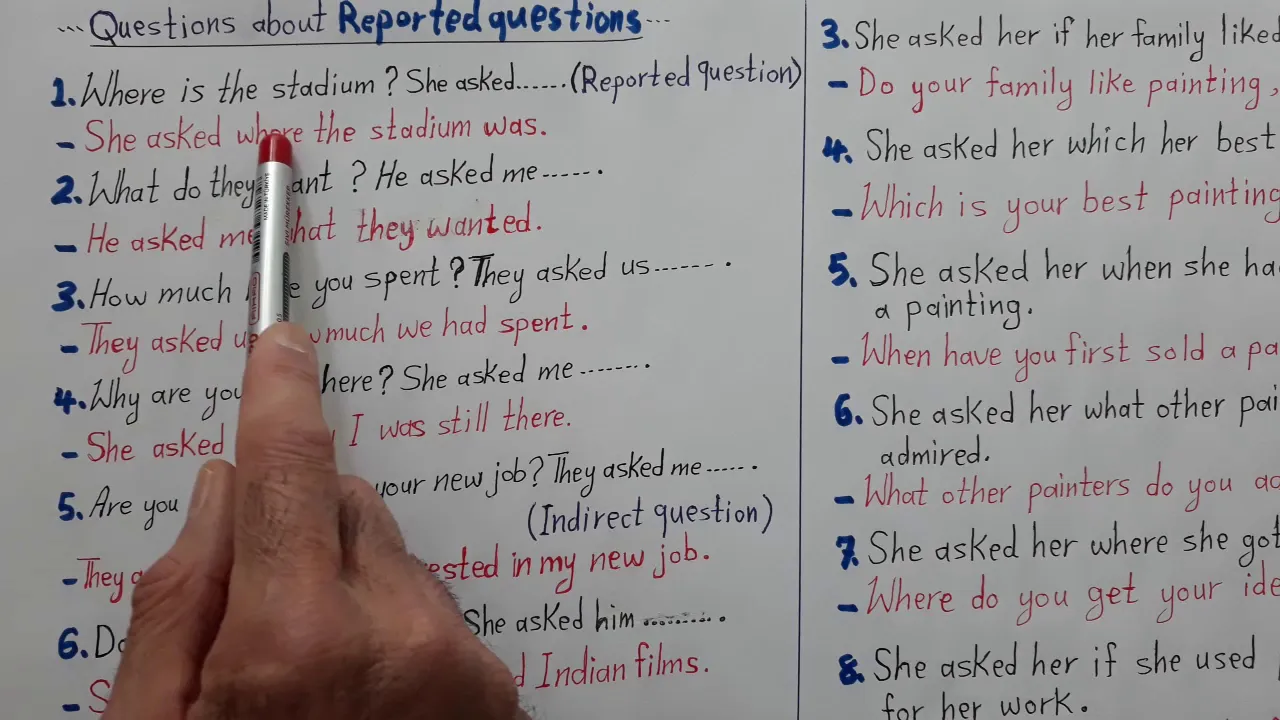 ... Questions about Reported questions ...
1. Where is the stadium ? She asked...... (Reported question)
- She asked where the stadium was.
2. What do they ant ? He asked me ----- .
- He asked me hat they wanted.
3. How much you spent ? They asked us ------ .
- They asked much we had spent .
4. Why are you here? She asked me ------- .
- She asked I was still there.
5. Are you your new job? They asked me ----- .
(Indirect question)
- They in my new job.
6. She asked him ......... .
- Indian films.
3. She asked her if her family liked
- Do your family like painting ,
4. She asked her which her best
- Which is your best painting
5. She asked her when she ha
a painting.
- When have you first sold a pa
6. She asked her what other pai
admired.
- What other painters do you ad
7. She asked her where she got
- Where do you get your ide
8. She asked her if she used
for her work.